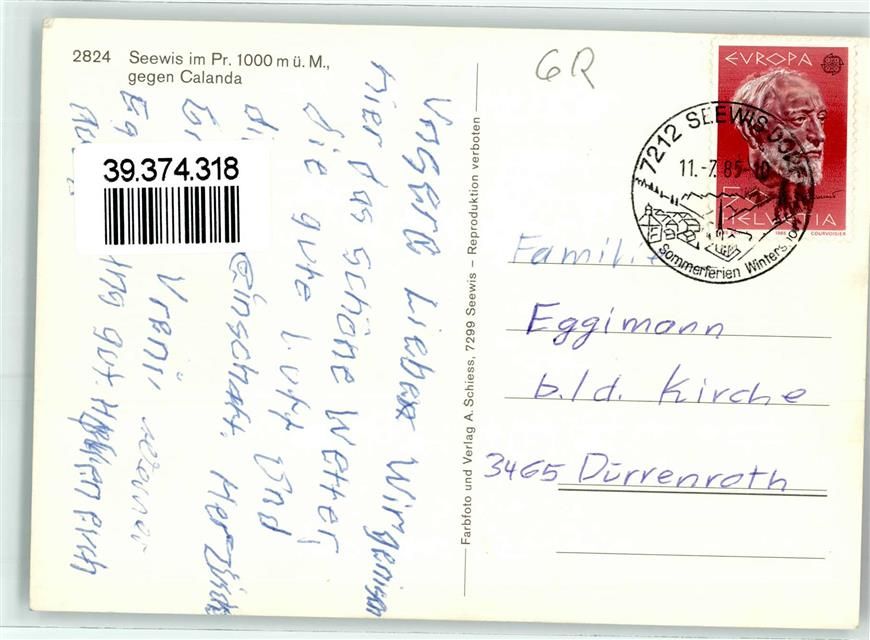 2824 Seewis im Pr. 1000 m ü. M.,
gegen Calanda
39.374.318
GR
EVROPA
HELVETIA
1985 COURVOISIER
7212 SEEWIS DORF
11.-7.85-10
Sommerferien Wintersport
Farbfoto und Verlag A. Schiess, 7299 Seewis – Reproduktion verboten
Familie
Eggimann
b./d. Kirche
3465 Dürrenroth
Unsere Lieben Wir genisen
hier das schöne Wetter,
die gute Luft und
die
einschaft. Herzliche
Vreni, Werner
ing gut.